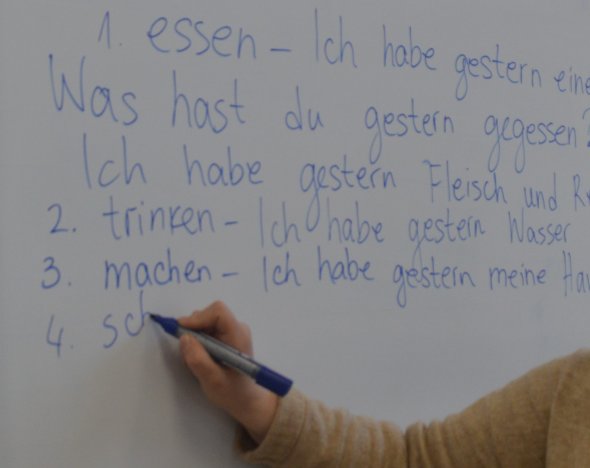 1. essen – Ich habe gestern eine
Was hast du gestern gegessen?
Ich habe gestern Fleisch und
2. trinken – Ich habe gestern Wasser
3. machen – Ich habe gestern meine
4. sch